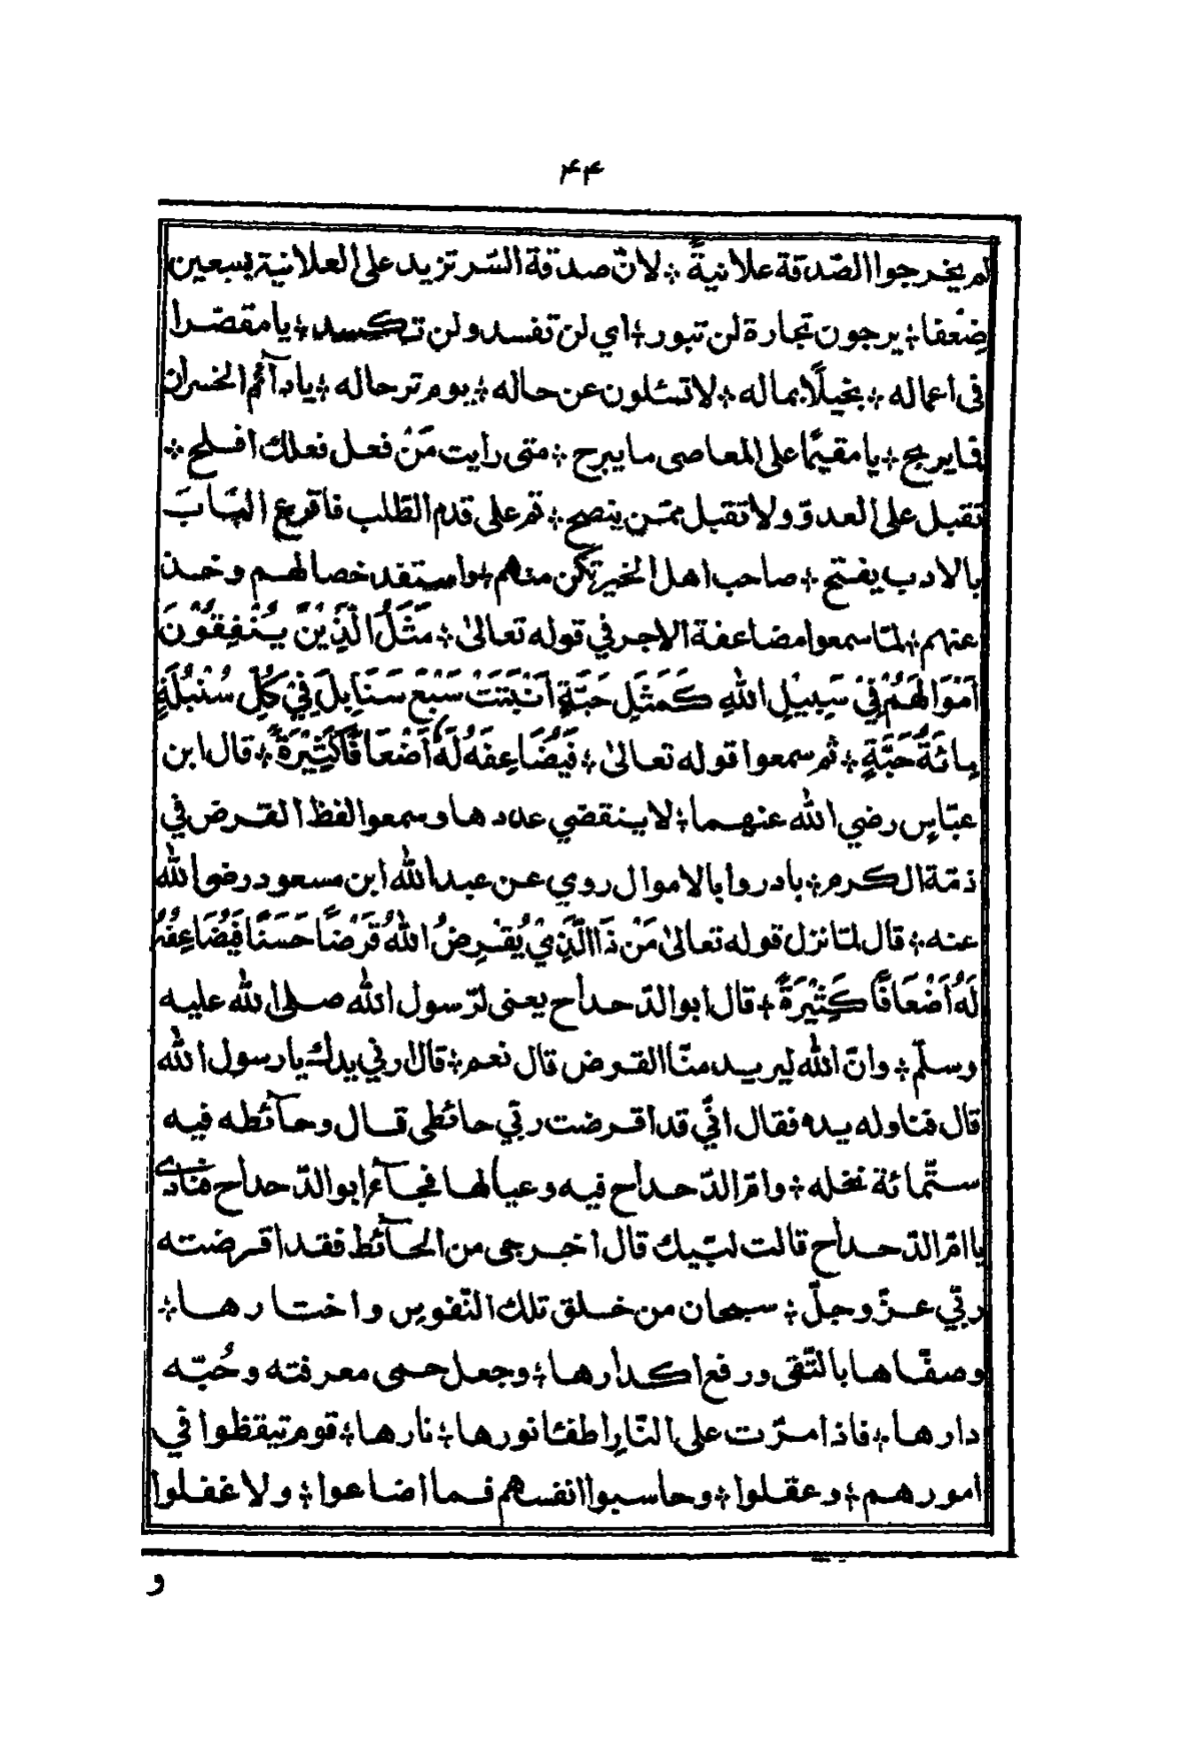 ۴۴
لم يخرجوا الصّدقة علانيةً ؞ لانّ صدقة السّر تزيد على العلانية بسبعين
ضِعْفا ؞ يرجون تجارة لن تبور ؞ اي لن تفسد ولن تكسد ؞ يا مقصّرا
فى اعماله ؞ بخيلًا بماله ؞ لا تسئلون عن حاله ؞ يوم ترحاله ؞ يا دآئم الخسران
فما يربح ؞ يا مقيمًا على المعاصى ما يبرح ؞ متى رايت مَنْ فعل فعلك افلح ؞
تقبل على العدوّ ولا تقبل ممّن ينصح ؞ قم على قدم الطّلب فاقرع البَابَ
بالادب يفتح ؞ صاحب اهل الخير تكن منهم ؞ واستفد خصالهم وخذ
عنهم ؞ لمّا سمعوا مضاعفة الاجر في قوله تعالىٰ ؞ مَثَلُ الَّذِيْنَ يُنْفِقُوْنَ
اَمْوَالَهُمْ فِيْ سَبِيْلِ اللّٰهِ كَمَثَلِ حَبَّةٍ اَنْبَتَتْ سَبْعَ سَنَابِلَ فِيْ كُلِّ سُنْبُلَةٍ
مِائَةُ حَبَّةٍ ؞ ثم سمعوا قوله تعالىٰ ؞ فَيُضَاعِفَهُ لَهُ اَضْعَافًا كَثِيْرَةً ؞ قال ابن
عبّاسٍ رضي اللّٰه عنهما ؞ لا ينقضي عددها وسمعوا لفظ القرض في
ذمّة الكرم ؞ بادروا بالاموال روي عن عبد اللّٰه ابن مسعود رضى اللّٰه
عنه ؞ قال لمّا نزل قوله تعالىٰ مَنْ ذَا الَّذِيْ يُقْرِضُ اللّٰهُ قَرْضًا حَسَنًا فَيُضَاعِفُهُ
لَهُ اَضْعَافًا كَثِيْرَةً ؞ قال ابو الدّحداح يعنى لرّسول اللّٰه صلى اللّٰه عليه
وسلّم ؞ وانّ اللّٰه ليريد منّا القرض قال نعم ؞ قال ارني يدك يا رسول اللّٰه
قال فناوله يده فقال انّي قد اقرضت ربّي حائطى قال وحآئطه فيه
ستّمائة نخله ؞ وامّ الدّحداح فيه وعيالها فجآء ابو الدّحداح فنادىٰ
يا امّ الدّحداح قالت لبّيك قال اخرجى من الحآئط فقد اقرضته
ربّي عزّ وجلّ ؞ سبحان من خلق تلك النّفوس واختارها ؞
وصفّاها بالتّقى ورفع اكدارها ؞ وجعل حمى معرفته وحُبّه
دارها ؞ فاذا مرّت على النّار اطفئا نورها ؞ نارها ؞ قوم تيقظوا في
امورهم ؞ وعقلوا ؞ وحاسبوا انفسهم فما اضاعوا ؞ ولا غفلوا
و